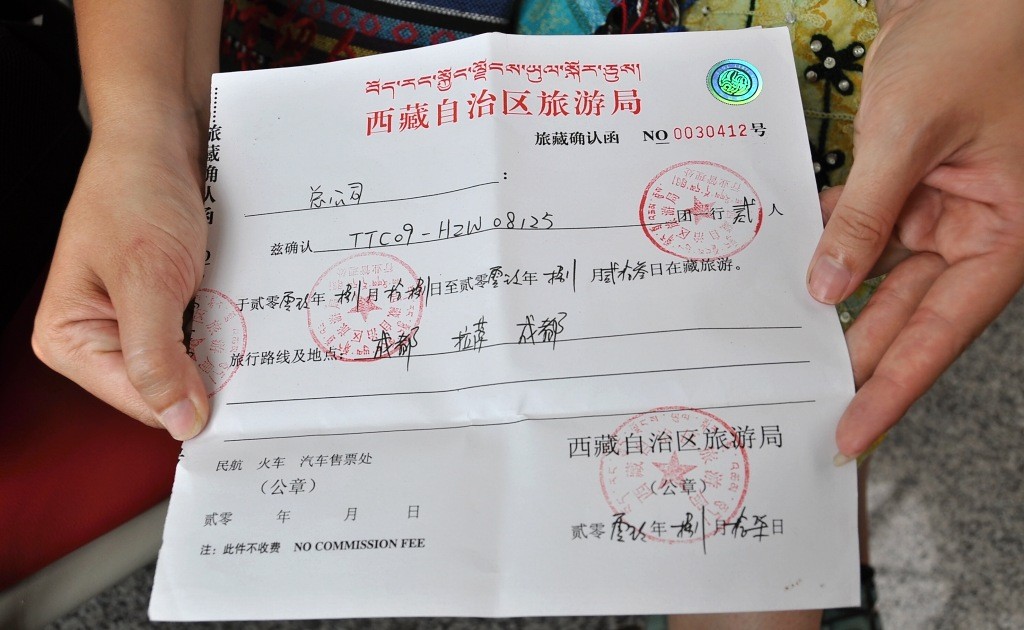 བོད་རང་སྐྱོང་ལྗོངས་ཡུལ་སྐོར་ཅུས།
西藏自治区旅游局
旅藏确认函 NO 0030412号
总公司：
兹确认 TTC09-HZW08125 团一行 贰 人
于贰零零玖年捌月拾捌日至贰零零玖年捌月贰拾叁日在藏旅游。
旅行路线及地点：成都 拉萨 成都
民航 火车 汽车售票处
（公章）
贰零 年 月 日
注：此件不收费 NO COMMISSION FEE
西藏自治区旅游局
（公章）
贰零零玖年捌月拾柒日
旅藏确认函